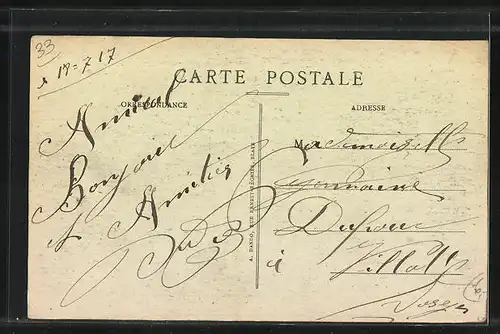 33
18-7-17
CARTE POSTALE
CORRESPONDANCE
ADRESSE
Amical
Bonjour
et Amitiés
Mademoiselle
Germaine
Dufour
à
Vosges